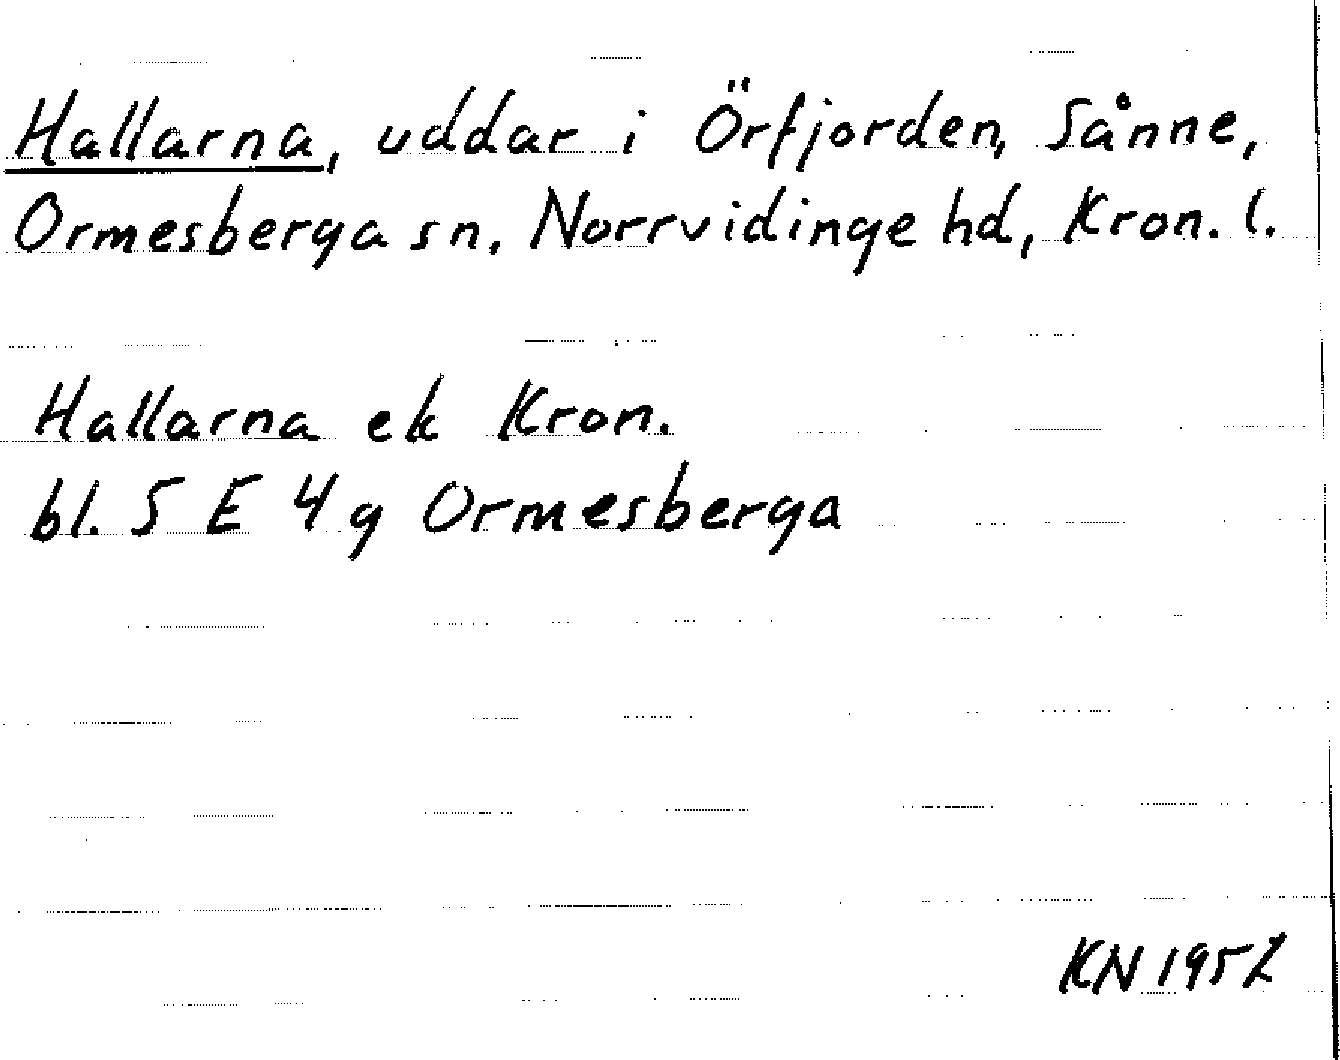 Hallarna, uddar i Örfjorden, Sånne,
Ormesberga sn, Norrvidinge hd, Kron. l.
Hallarna ek Kron.
bl. 5 E 4 g Ormesberga
KN 1952